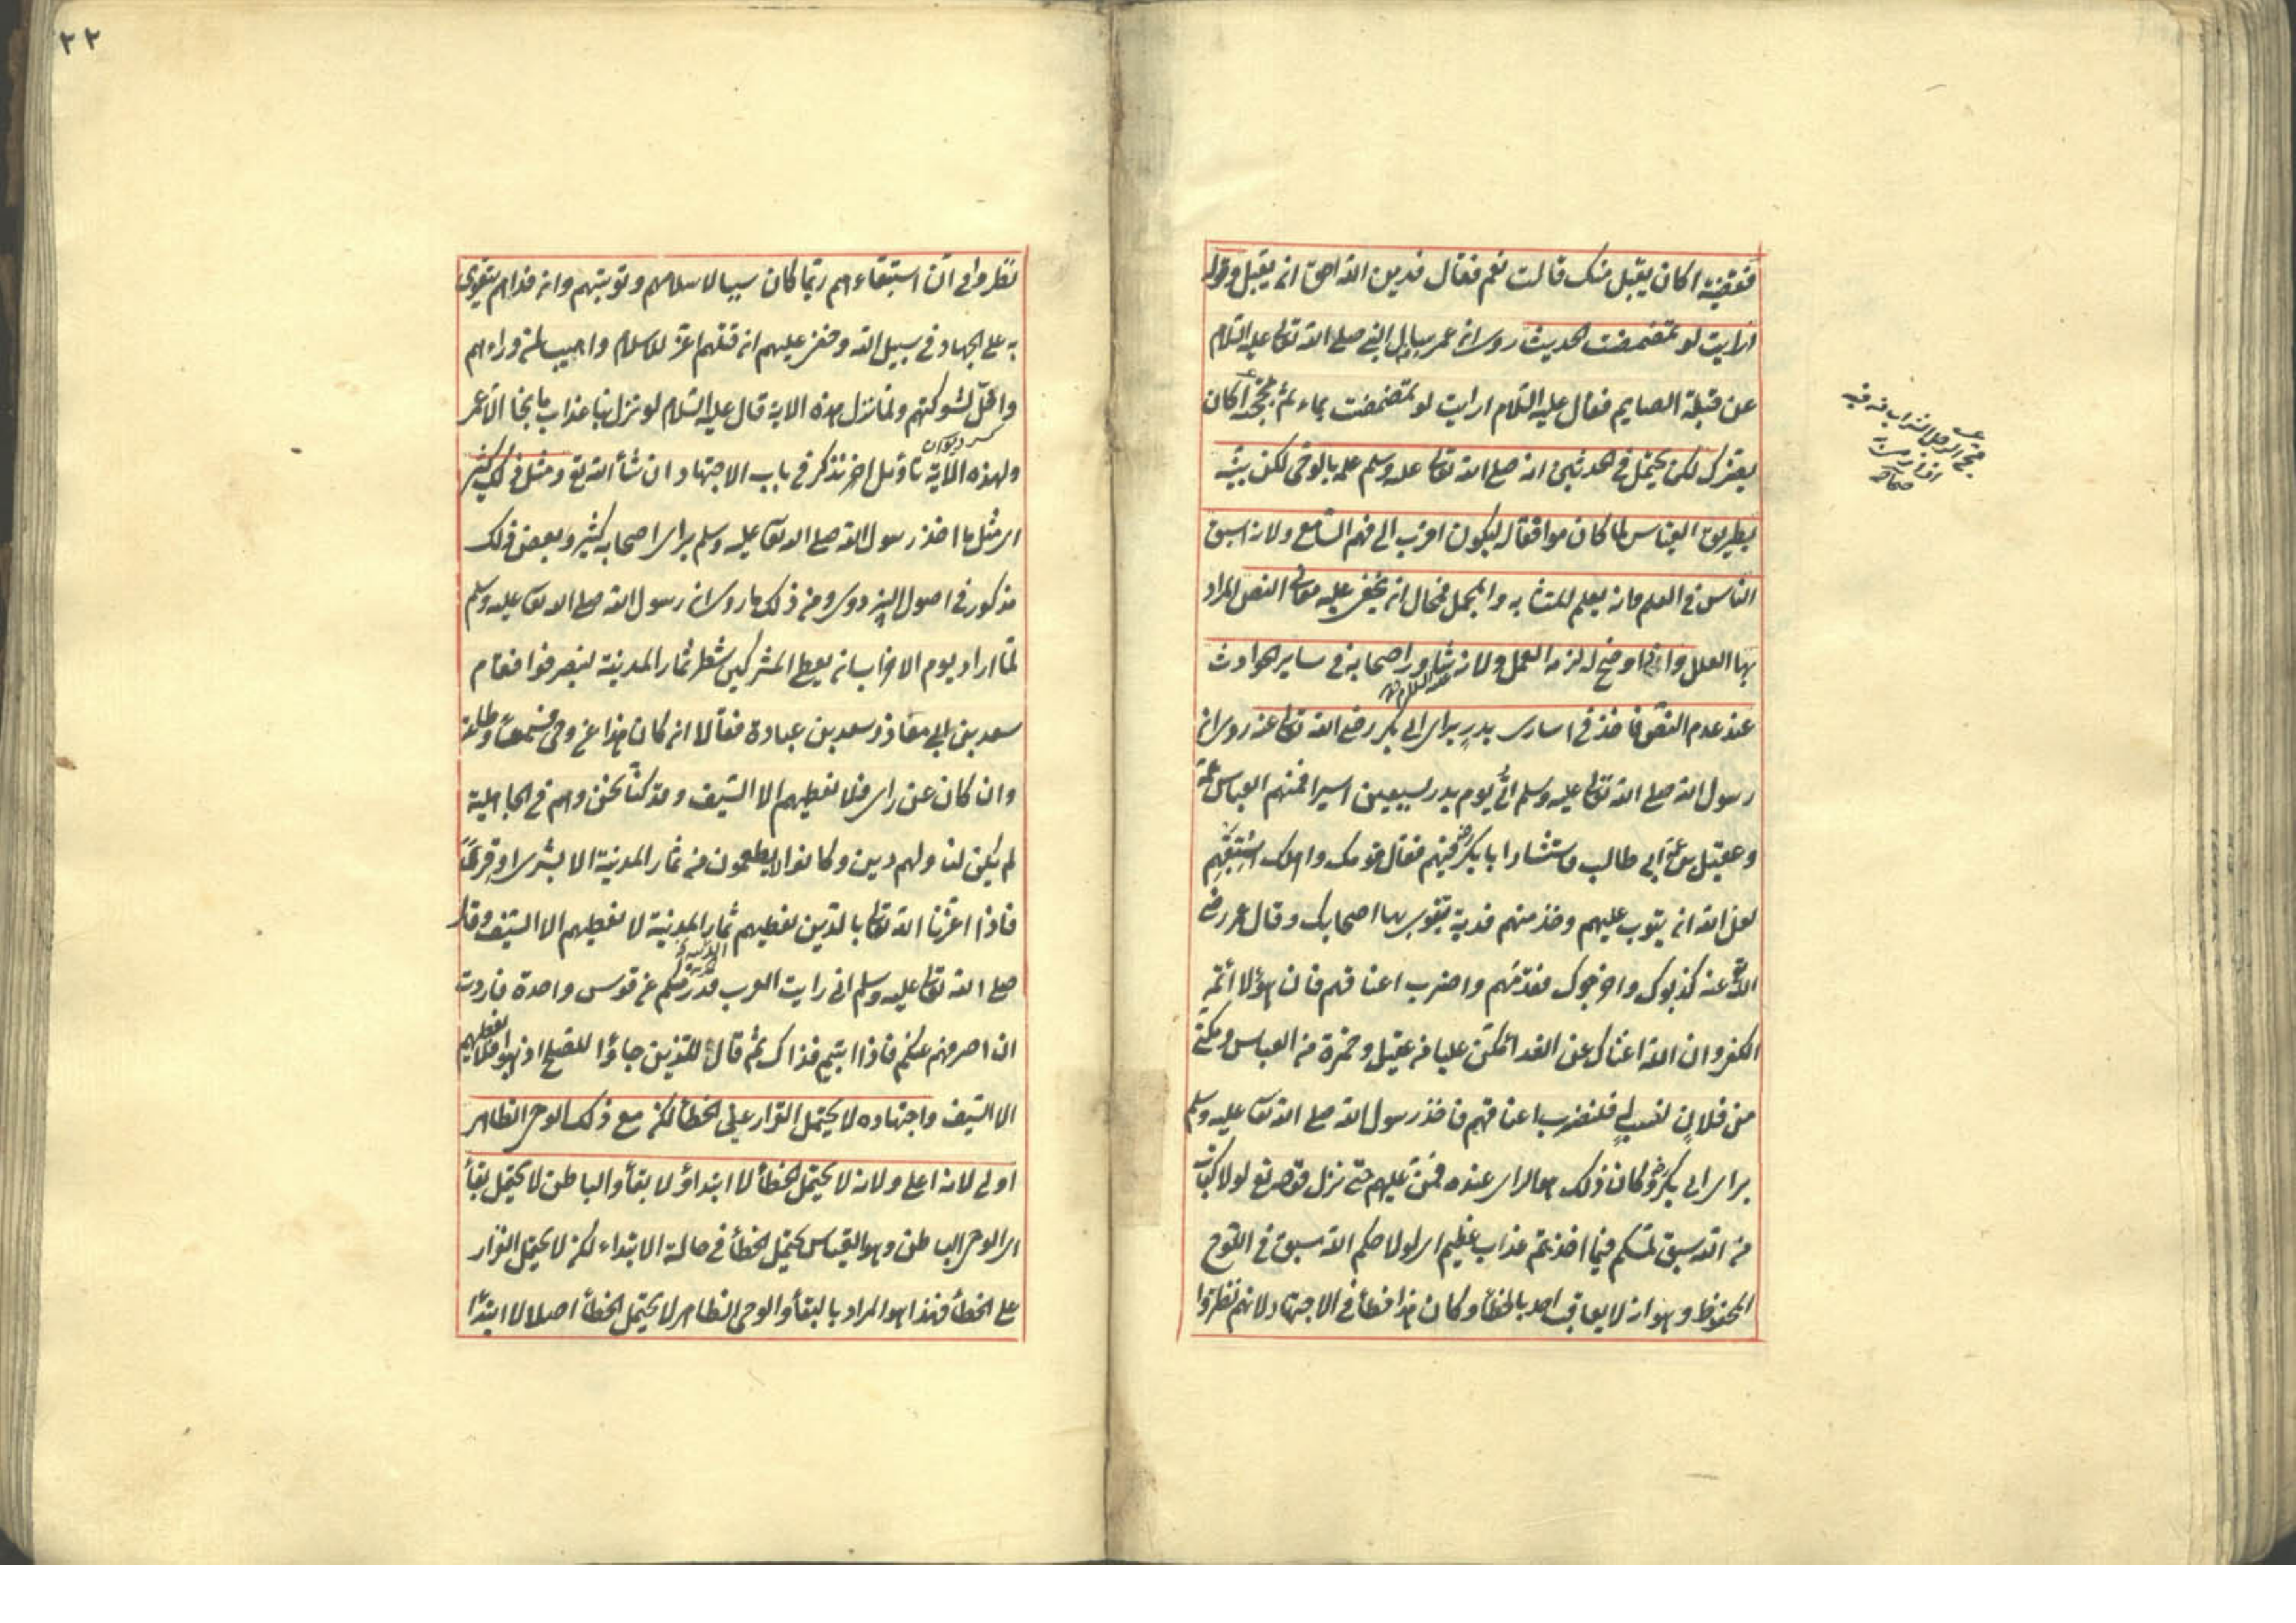 فقضيته اكان يقبل منك قالت نعم فقال فدين الله احق ان يقبل وقوله
ارايت لو تمضمضت الحديث روى ان عمر سال النبي صلى الله تعالى عليه السلام
عن قبلة الصايم فقال عليه السلام ارايت لو تمضمضت بماء ثم مججته اكان
يضرك لكن يحتمل في الحديثين انه صلى الله تعالى عليه وسلم علم بالوحي لكن بينه
بطريق القياس لما كان موافقا له ليكون اقرب الى فهم السامع ولانه اسبق
الناس في العلم وانه يعلم المتشابه والمجمل فمحال ان يخفى عليه معاني النص المراد
بها العلل واذا وضح له لزمه العمل ولانه شاور اصحابه في ساير الحوادث
عليه السلام
عند عدم النص فاخذ في اسارى بدر براى ابي بكر رضي الله تعالى عنه روى ان
رسول الله صلى الله تعالى عليه وسلم اتى يوم بدر بسبعين اسيرا فمنهم العباس عمه
وعقيل بن عمه ابي طالب فاستشار ابا بكر رض فيهم فقال قومك واهلك استبقهم
لعل الله ان يتوب عليهم وخذ منهم فدية يتقوى بها اصحابك وقال عمر رضي
الله عنه كذبوك واخرجوك فقدمهم واضرب اعناقهم فان هؤلا ائمة
الكفر وان الله اغناك عن الفدا مكن عليا من عقيل وحمزة من العباس ومكني
من فلان لنسيب لي فلنضرب اعناقهم فاخذ رسول الله صلى الله تعا عليه وسلم
براى ابي بكر رض وكان ذلك هو الراى عنده فمن عليهم حتى نزل قوله تع لولا كتاب
من الله سبق لمسكم فيما اخذتم عذاب عظيم اى لولا حكم الله سبق في اللوح
المحفوظ وهو ان لا يعاقب احد بالخطأ وكان هذا خطأ في الاجتهاد لانهم نظروا
٢٢
نظروا في ان استبقاءهم ربما كان سببا لاسلامهم وتوبتهم وان فداهم يتقوى
به على الجهاد في سبيل الله وخفي عليهم ان قتلهم اعز للاسلام واهيب لمن وراءهم
واقل لشوكتهم ولما نزل هذه الاية قال عليه السلام لو نزل بنا عذاب ما نجا الا عمر
ولهذه الاية تاويل اخر نذكر في باب الاجتهاد ان شأ الله تع ومثل ذلك كثير
اى مثل ما اخذ رسول الله صلى الله تعا عليه وسلم براى اصحابه كثير وبعض ذلك
مذكور في اصول البزدوى ومن ذلك ما روى ان رسول الله صلى الله تعا عليه وسلم
لما اراد يوم الاحزاب ان يعطى المشركين شطر ثمار المدينة لينصرفوا فقام
سعد بن ابي معاذ وسعد بن عبادة فقالا ان كان هذا عن وحي فسمعا وطاعة
وان كان عن راى فلا نعطيهم الا السيف وقد كنا نحن وهم في الجاهلية
لم يكن لنا ولهم دين وكانوا لا يطعمون من ثمار المدينة الا بشرى او قرى
فاذا اعزنا الله تعالى بالدين نعطيهم ثمار المدينة لا نعطيهم الا السيف وقال
صلى الله تعالى عليه وسلم اني رايت العرب قد رمتكم عن قوس واحدة فاردت
ان اصرفهم عنكم فاذا ابيتم فذاك ثم قال للذين جاؤا للصلح اذهبوا فلا نعطيهم
الا السيف واجتهاده لا يحتمل القرار على الخطأ لكن مع ذلك الوحى الظاهر
اولى لانه اعلى ولانه لا يحتمل الخطأ لا ابتداؤ لا بقأ والباطن لا يحتمل بقأ
اى الوحى الباطن وهو القياس يحتمل الخطأ في حالة الابتداء لكن لا يحتمل القرار
على الخطأ فهذا هو المراد بالبقأ والوحى الظاهر لا يحتمل الخطأ اصلا لا ابتدا